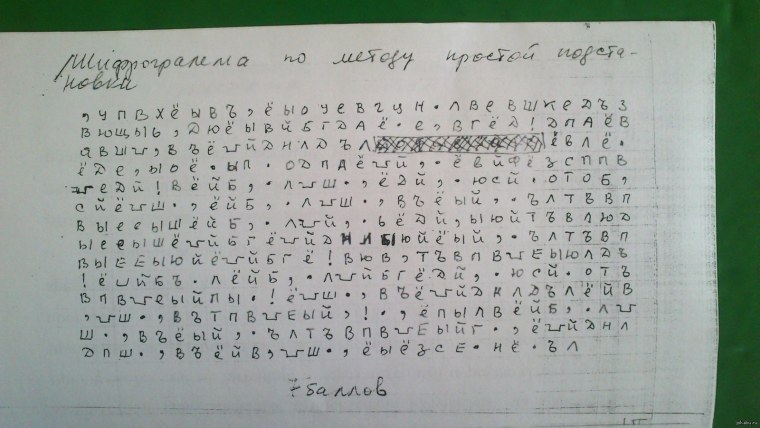 Шифрограмма по методу простой подста-
новки
, У П В Х Ё Ы В Ъ , Ё Ы О У Е В Г Ц Н . Л В Е В Ш К Е Д Ъ З
В Ю Щ Ы Ь , Д Ю Ё Ы В Й Б Г Д А Ё . Е , В Г Ё Д ! Д П А Ё В
Ё В Л Ё .
Ё Д Е , Ы О Ё . Ы П . О Д П А Ё Щ Й , . Ё В Й Ф Ё З С П П В
Е Д Й ! В Ё Й Б , . Л Щ Ш . , Ё Д Й , . Ю С Й . О Т О Б ,
С Й Ё Щ Ш . , Ё Й Б , . Л Щ Ш . , В Ъ Ё Ы Й , . Ъ Л Т Ъ В П
В Ы Е Е Ы Ш Ё Й Б , . Л Щ Й , . Ь Ё Д Й , Ы Ю Й Т Ъ В Л Ю Д
Ю Й Ё Ы Й , . Ъ Л Т Ъ В П
В Ы Е Е Ы Ю Й Ё Щ Й Б Г Ё ! В Ю В , Т Ъ В П В Щ Е Ы Ю Л Д Ъ
! Ё Щ Й Б Ъ . Л Ё Й Б , . Л Щ Й Б Г Ё Д Й , . Ю С Й . О Т Ъ
В П В Щ Е Ы Й П Ы . ! Ё Щ Ш . , В Ъ Ё Щ Й Д Н Л Д Ъ Л Ё Й В
, Щ Ш . , В Ъ Т П В Щ Е Ы Й , ! . , Ё П Ы Л В Ё Й Б , . Л Щ
Ш . , В Ъ Ё Ы Й , . Ъ Л Т Ъ В П В Щ Е Ы Й Г . , Ё Щ Й Д Н Л
Д П Ш . , В Ъ Ё Й В , Щ Ш . , Ё Ы Ё З С Е . Н Ё . Ъ Л
7 баллов